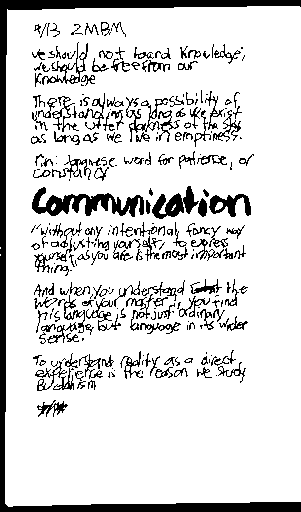 4/13 ZMBM
We should not hoard knowledge;
we should be free from our
knowledge
There is always a possibility of
understanding as long as we exist
in the utter darkness of the sky
as long as we live in emptiness.
nin: Japanese word for patience, or
constancy
Communication
"Without any intentional, fancy way
of adjusting yourself, to express
yourself as you are is the most important
thing."
And when you understand the
words of your master, you find
his language is not just ordinary
language, but language in its wider
sense.
To understand reality as a direct
experience is the reason we study
Buddhism